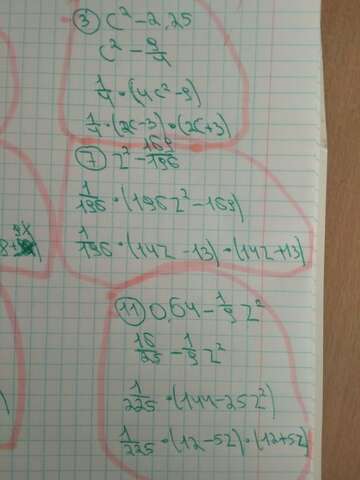 ③ c² - 2,25
c² - 9/4
1/4 • (4c² - 9)
1/4 • (2c - 3) • (2c + 3)
⑦ z² - 169/196
1/196 • (196z² - 169)
1/196 • (14z - 13) • (14z + 13)
⑪ 0,64 - 1/9 z²
16/25 - 1/9 z²
1/225 • (144 - 25z²)
1/225 • (12 - 5z) • (12 + 5z)